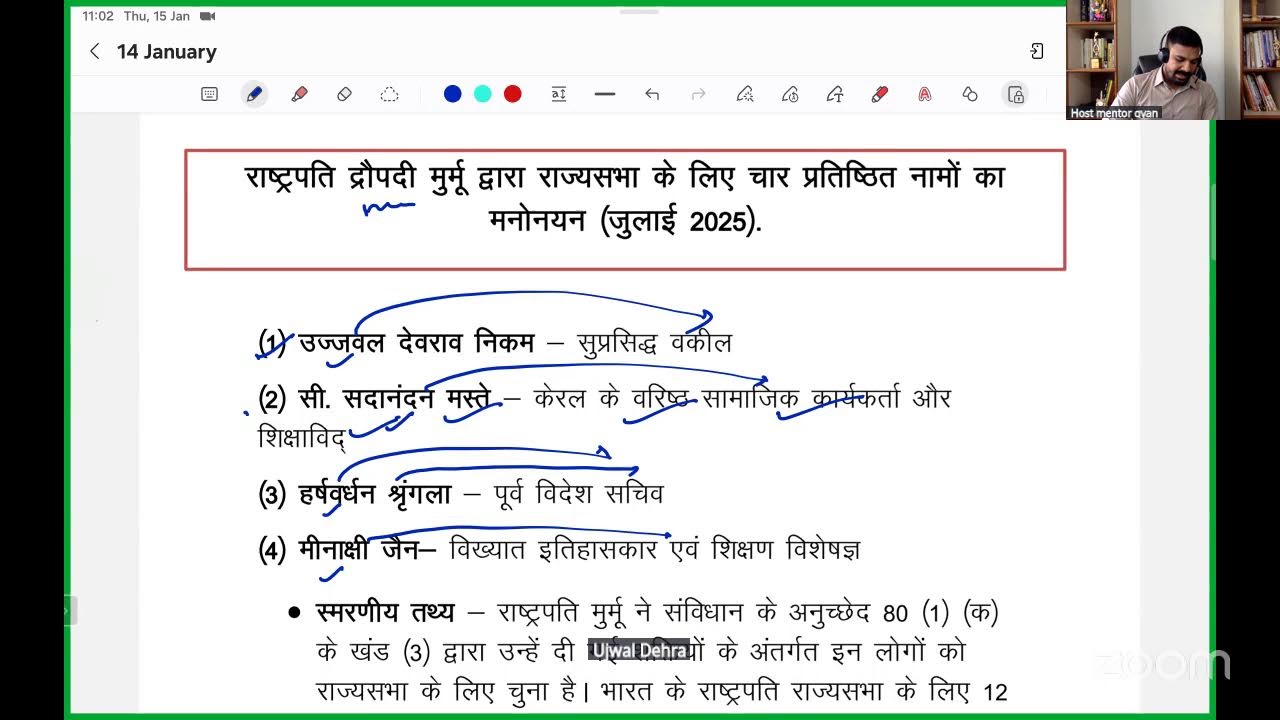 11:02 Thu, 15 Jan
14 January
Host mentor gyan
राष्ट्रपति द्रौपदी मुर्मू द्वारा राज्यसभा के लिए चार प्रतिष्ठित नामों का
मनोनयन (जुलाई 2025).
(1) उज्जवल देवराव निकम – सुप्रसिद्ध वकील
(2) सी. सदानंदन मस्ते – केरल के वरिष्ठ सामाजिक कार्यकर्ता और
शिक्षाविद्
(3) हर्षवर्धन श्रृंगला – पूर्व विदेश सचिव
(4) मीनाक्षी जैन– विख्यात इतिहासकार एवं शिक्षण विशेषज्ञ
• स्मरणीय तथ्य – राष्ट्रपति मुर्मू ने संविधान के अनुच्छेद 80 (1) (क)
के खंड (3) द्वारा उन्हें दी के अंतर्गत इन लोगों को
Ujwal Dehra
राज्यसभा के लिए चुना है। भारत के राष्ट्रपति राज्यसभा के लिए 12
zoom